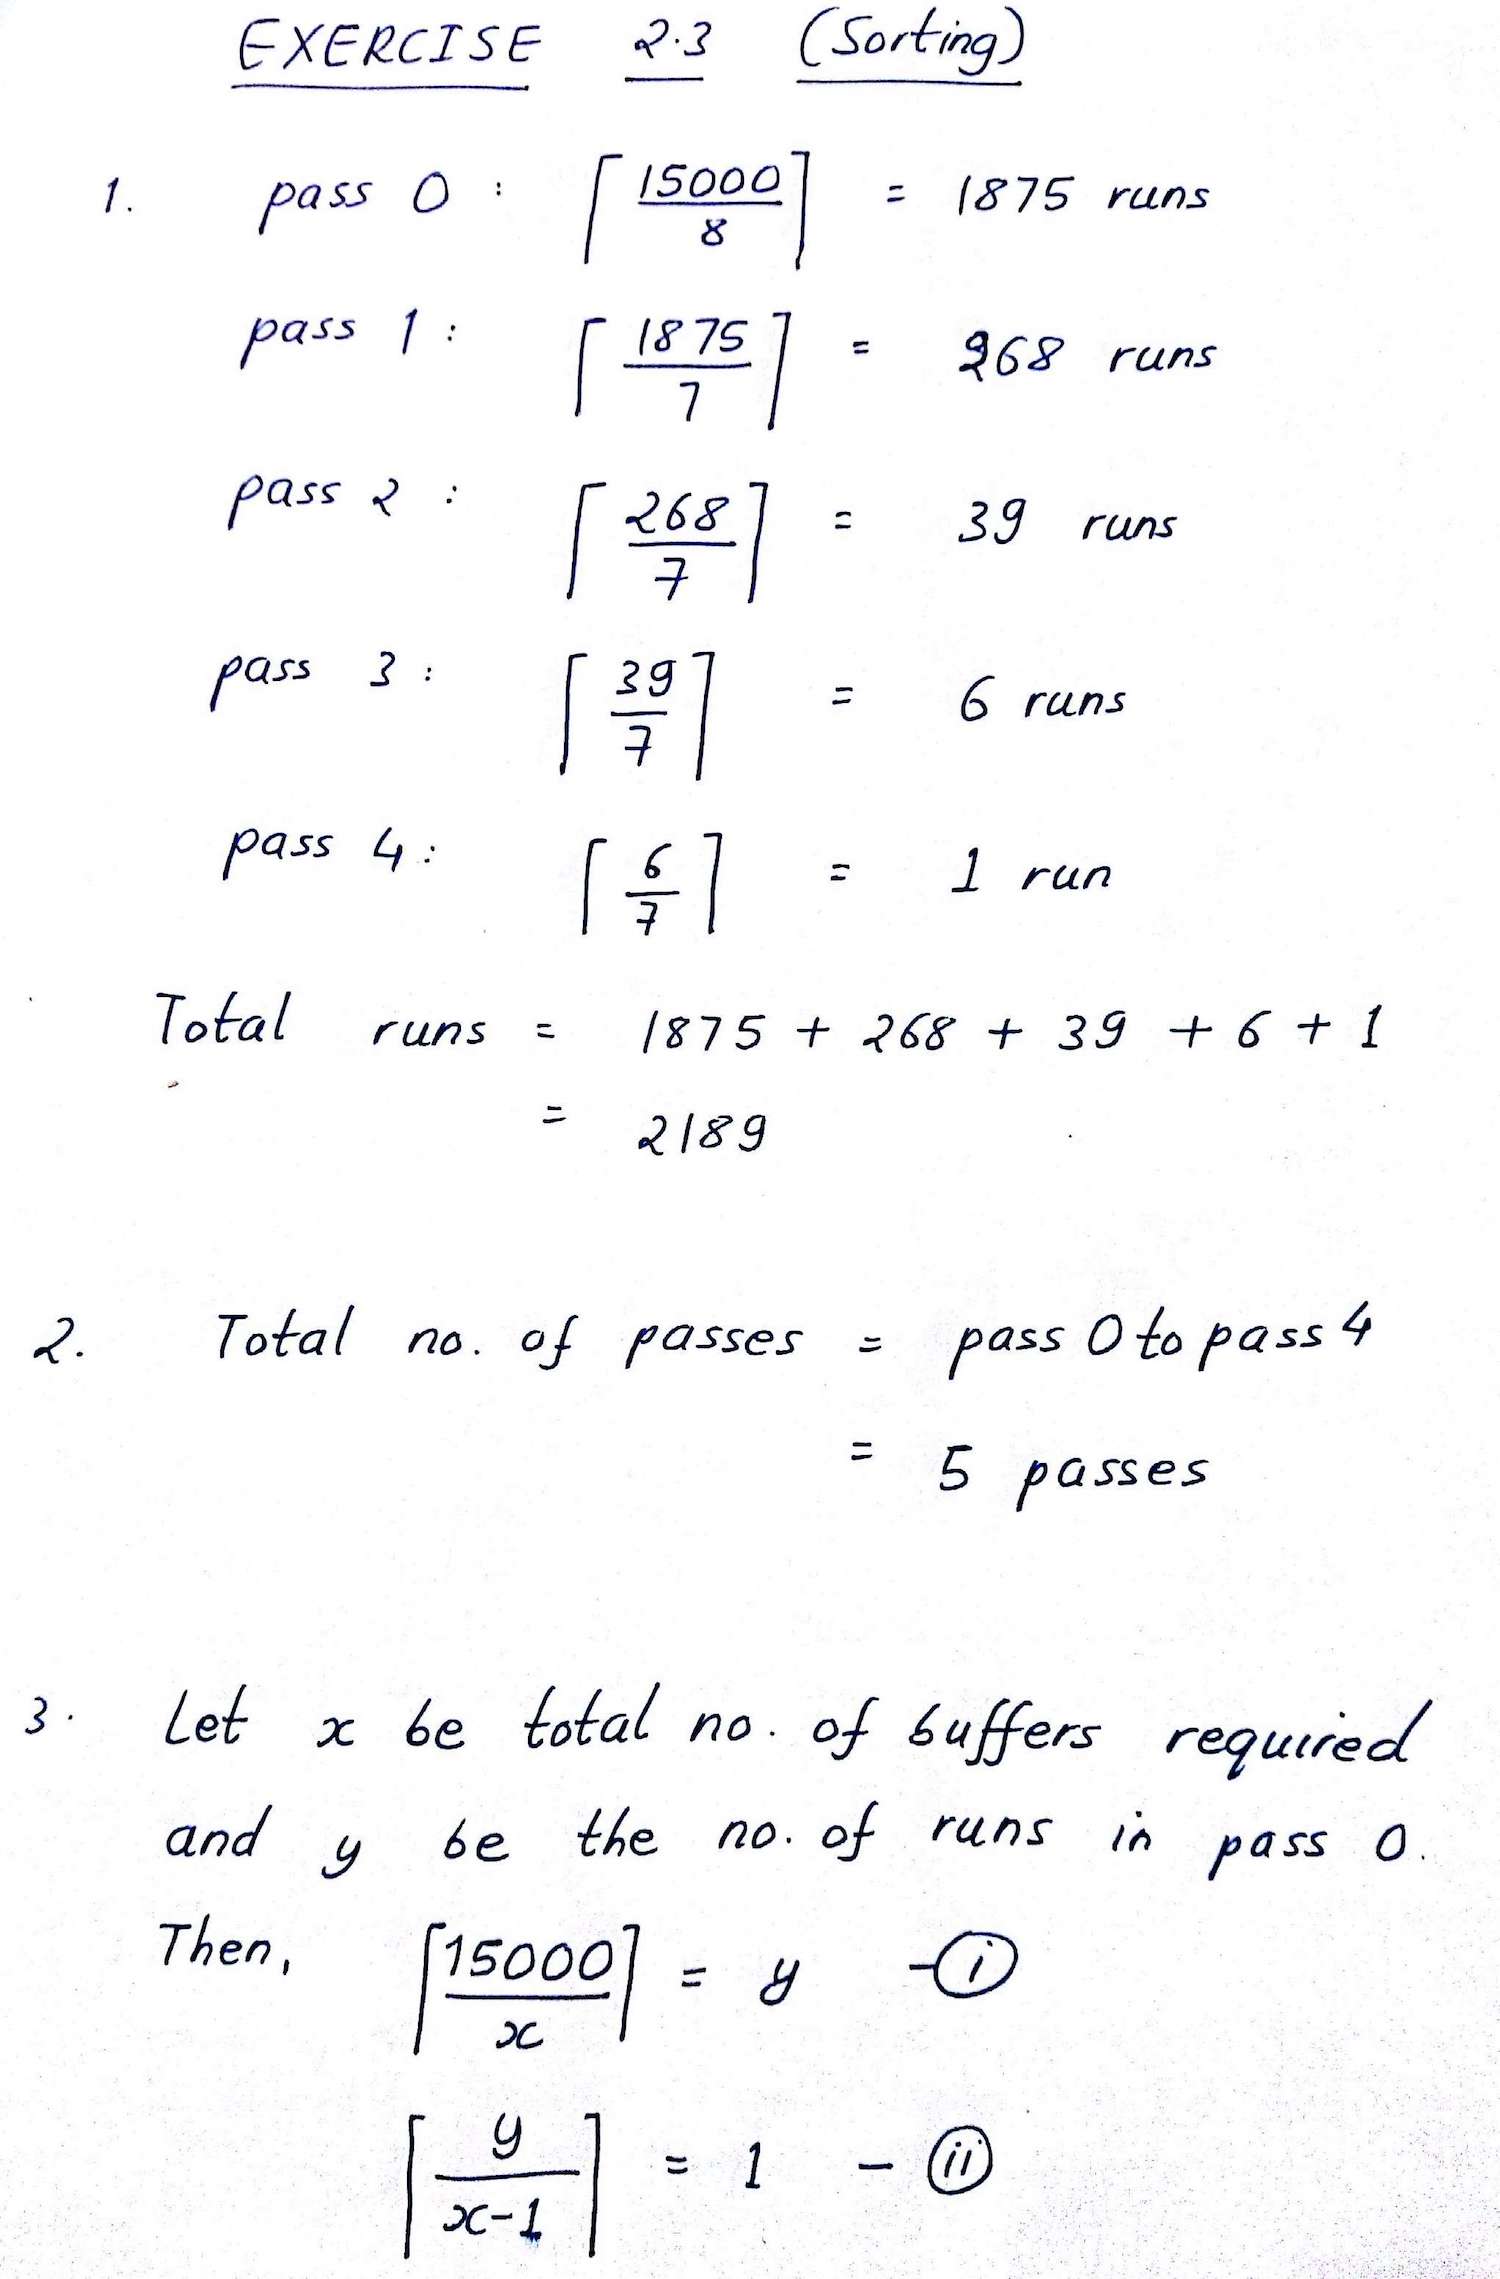 EXERCISE 2.3 (Sorting)
1. pass 0 : ⌈15000/8⌉ = 1875 runs
pass 1 : ⌈1875/7⌉ = 268 runs
pass 2 : ⌈268/7⌉ = 39 runs
pass 3 : ⌈39/7⌉ = 6 runs
pass 4 : ⌈6/7⌉ = 1 run
Total runs = 1875 + 268 + 39 + 6 + 1
= 2189
2. Total no. of passes = pass 0 to pass 4
= 5 passes
3. Let x be total no. of buffers required
and y be the no. of runs in pass 0.
Then, ⌈15000/x⌉ = y - (i)
⌈y/(x-1)⌉ = 1 - (ii)